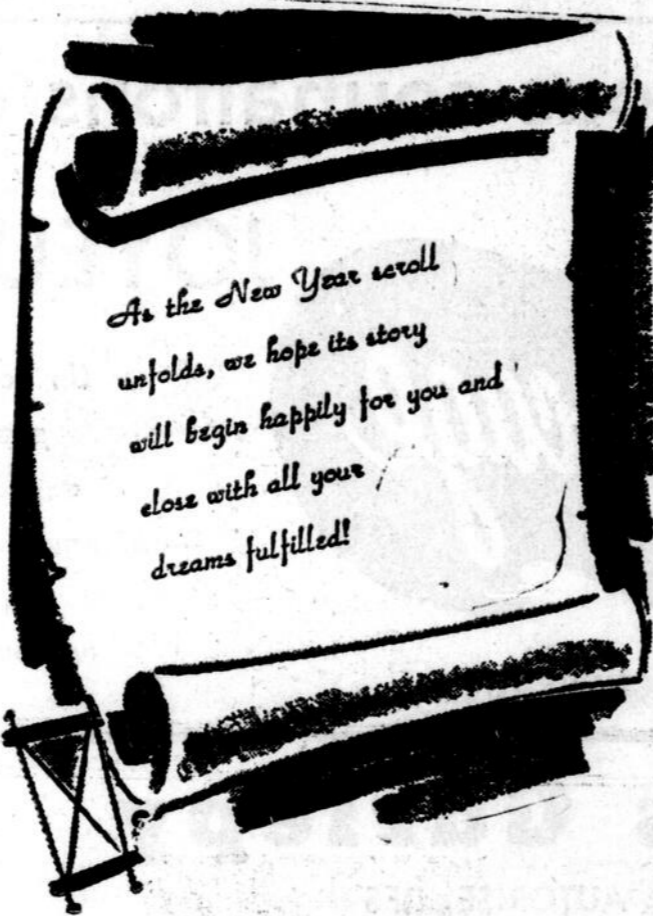 As the New Year scroll
unfolds, we hope its story
will begin happily for you and
close with all your
dreams fulfilled!